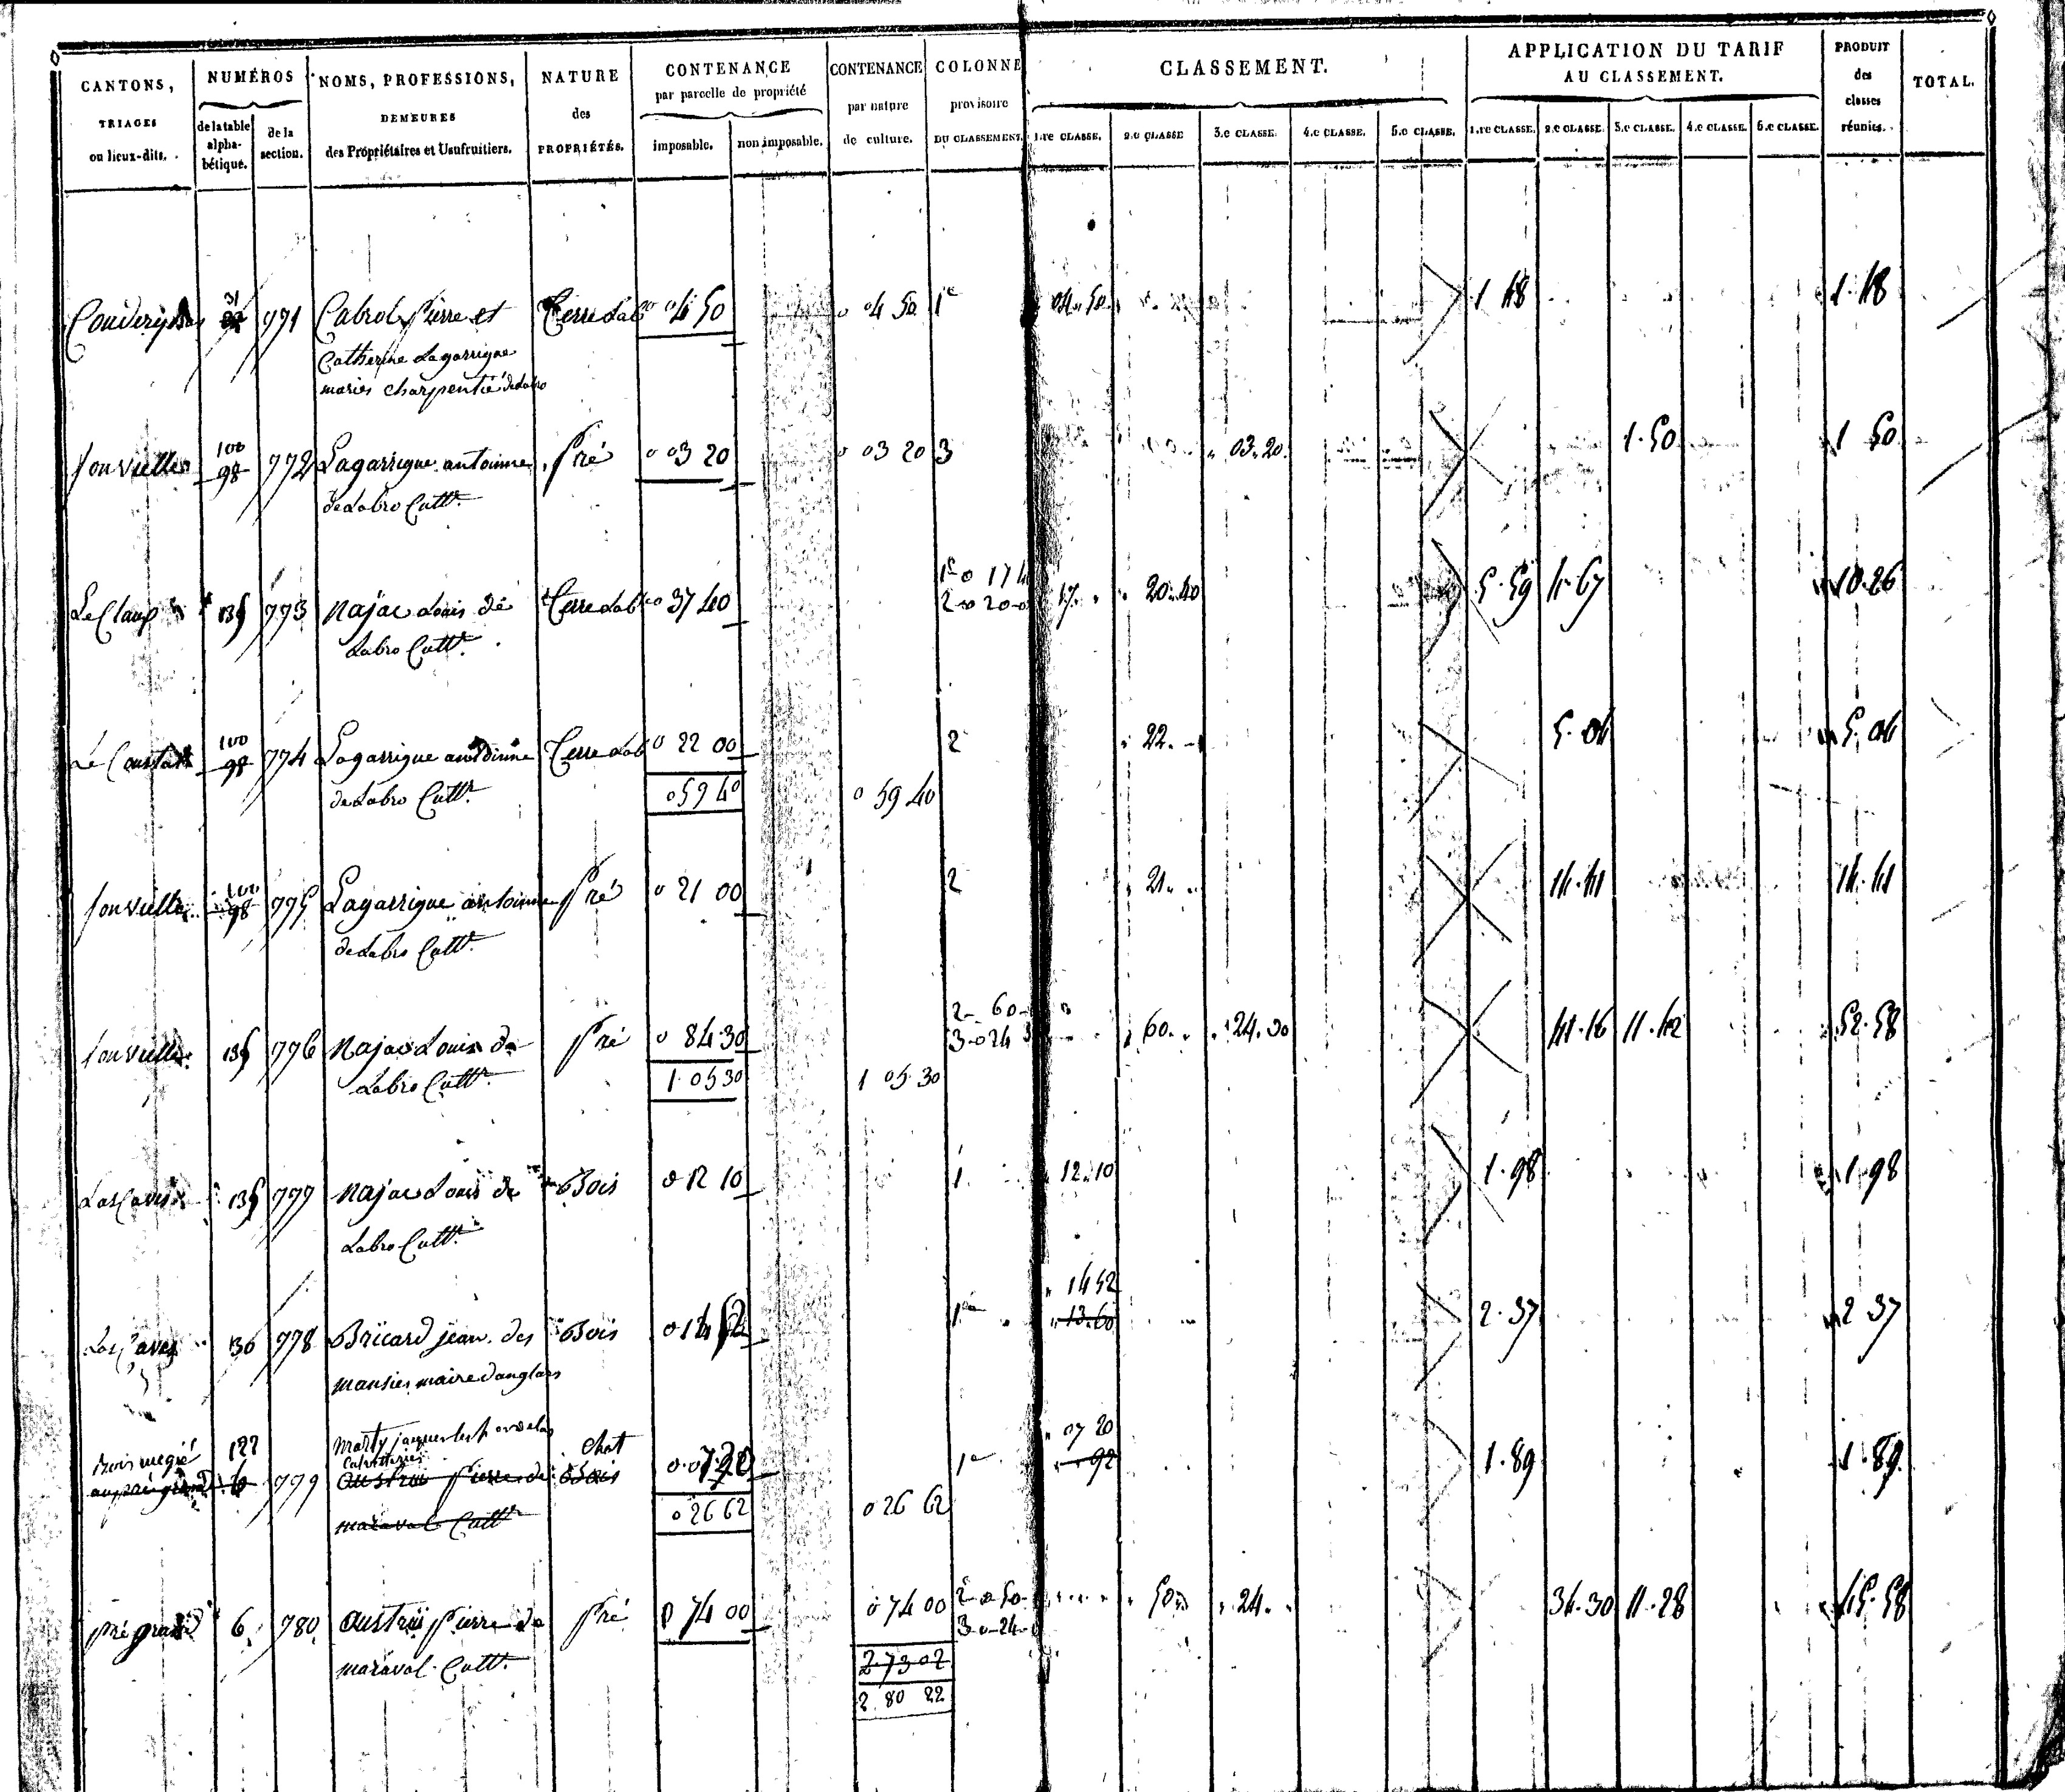 CANTONS, TRIAGES ou lieux-dits.
NUMÉROS
de la table alphabétique.
de la section.
NOMS, PROFESSIONS, DEMEURES des Propriétaires et Usufruitiers.
NATURE des PROPRIÉTÉS.
CONTENANCE par parcelle de propriété
imposable.
non imposable.
CONTENANCE par nature de culture.
COLONNE provisoire DU CLASSEMENT.
CLASSEMENT.
1.re CLASSE. 2.e CLASSE 3.e CLASSE. 4.e CLASSE. 5.e CLASSE.
APPLICATION DU TARIF AU CLASSEMENT.
1.re CLASSE. 2.e CLASSE. 3.e CLASSE. 4.e CLASSE. 5.e CLASSE.
PRODUIT des classes réunies.
TOTAL.
31 771 Cabrol Pierre et Terre Lab 0 04 50 0 04 50 1e 04.50 1.18 1.18
Catherine Lagarrigue
mariés charpentié de Labro
fonvielle 100
98 772 Lagarrigue antoinne Pré 0 03 20 0 03 20 3 03.20 1.50 1 50
de Labro Cultr.
Le Claux 135 773 Najac Louis de Terre Lab 0 37 40 17. 20.40 5.59 4.67 10.26
Labro Cultr.
100
98 774 Lagarrigue antoinne Terre Lab 0 22 00 2 22. 5.04 5.04
de Labro Cultr. 0 59 40 0 59 40
fonvielle 100
98 775 Lagarrigue antoinne Pré 0 21 00 2 21. 14.41 14.41
de Labro Cultr.
2 60
fonvielle 135 776 Najac Louis de Pré 0 84.30 3 0 24 3 60. 24.30 41.16 11.42 52.58
Labro Cultr. 1.05 30 1 05 30
135 777 Najac Louis de Bois 0 12 10 1 12.10 1.98 1.98
Labro Cultr.
14 52
Las Caves 136 778 Bricard jean des Bois 0 14 52 1re 13.60 2.37 2 37
mansies maire danglars
127 Marty jacques Chat 07 20
6 779 Austrui Pierre de Bois 0.07 20 1e 92 1.89 1.89
maraval Cultr 0 26 62 0 26 62
pré grand 6 780 Austrui Pierre de Pré 0 74 00 0 74 00 2 0 50 50 24. 34.30 11.28 45.58
maraval Cultr. 3 0 24
2.73 02
2 80 22